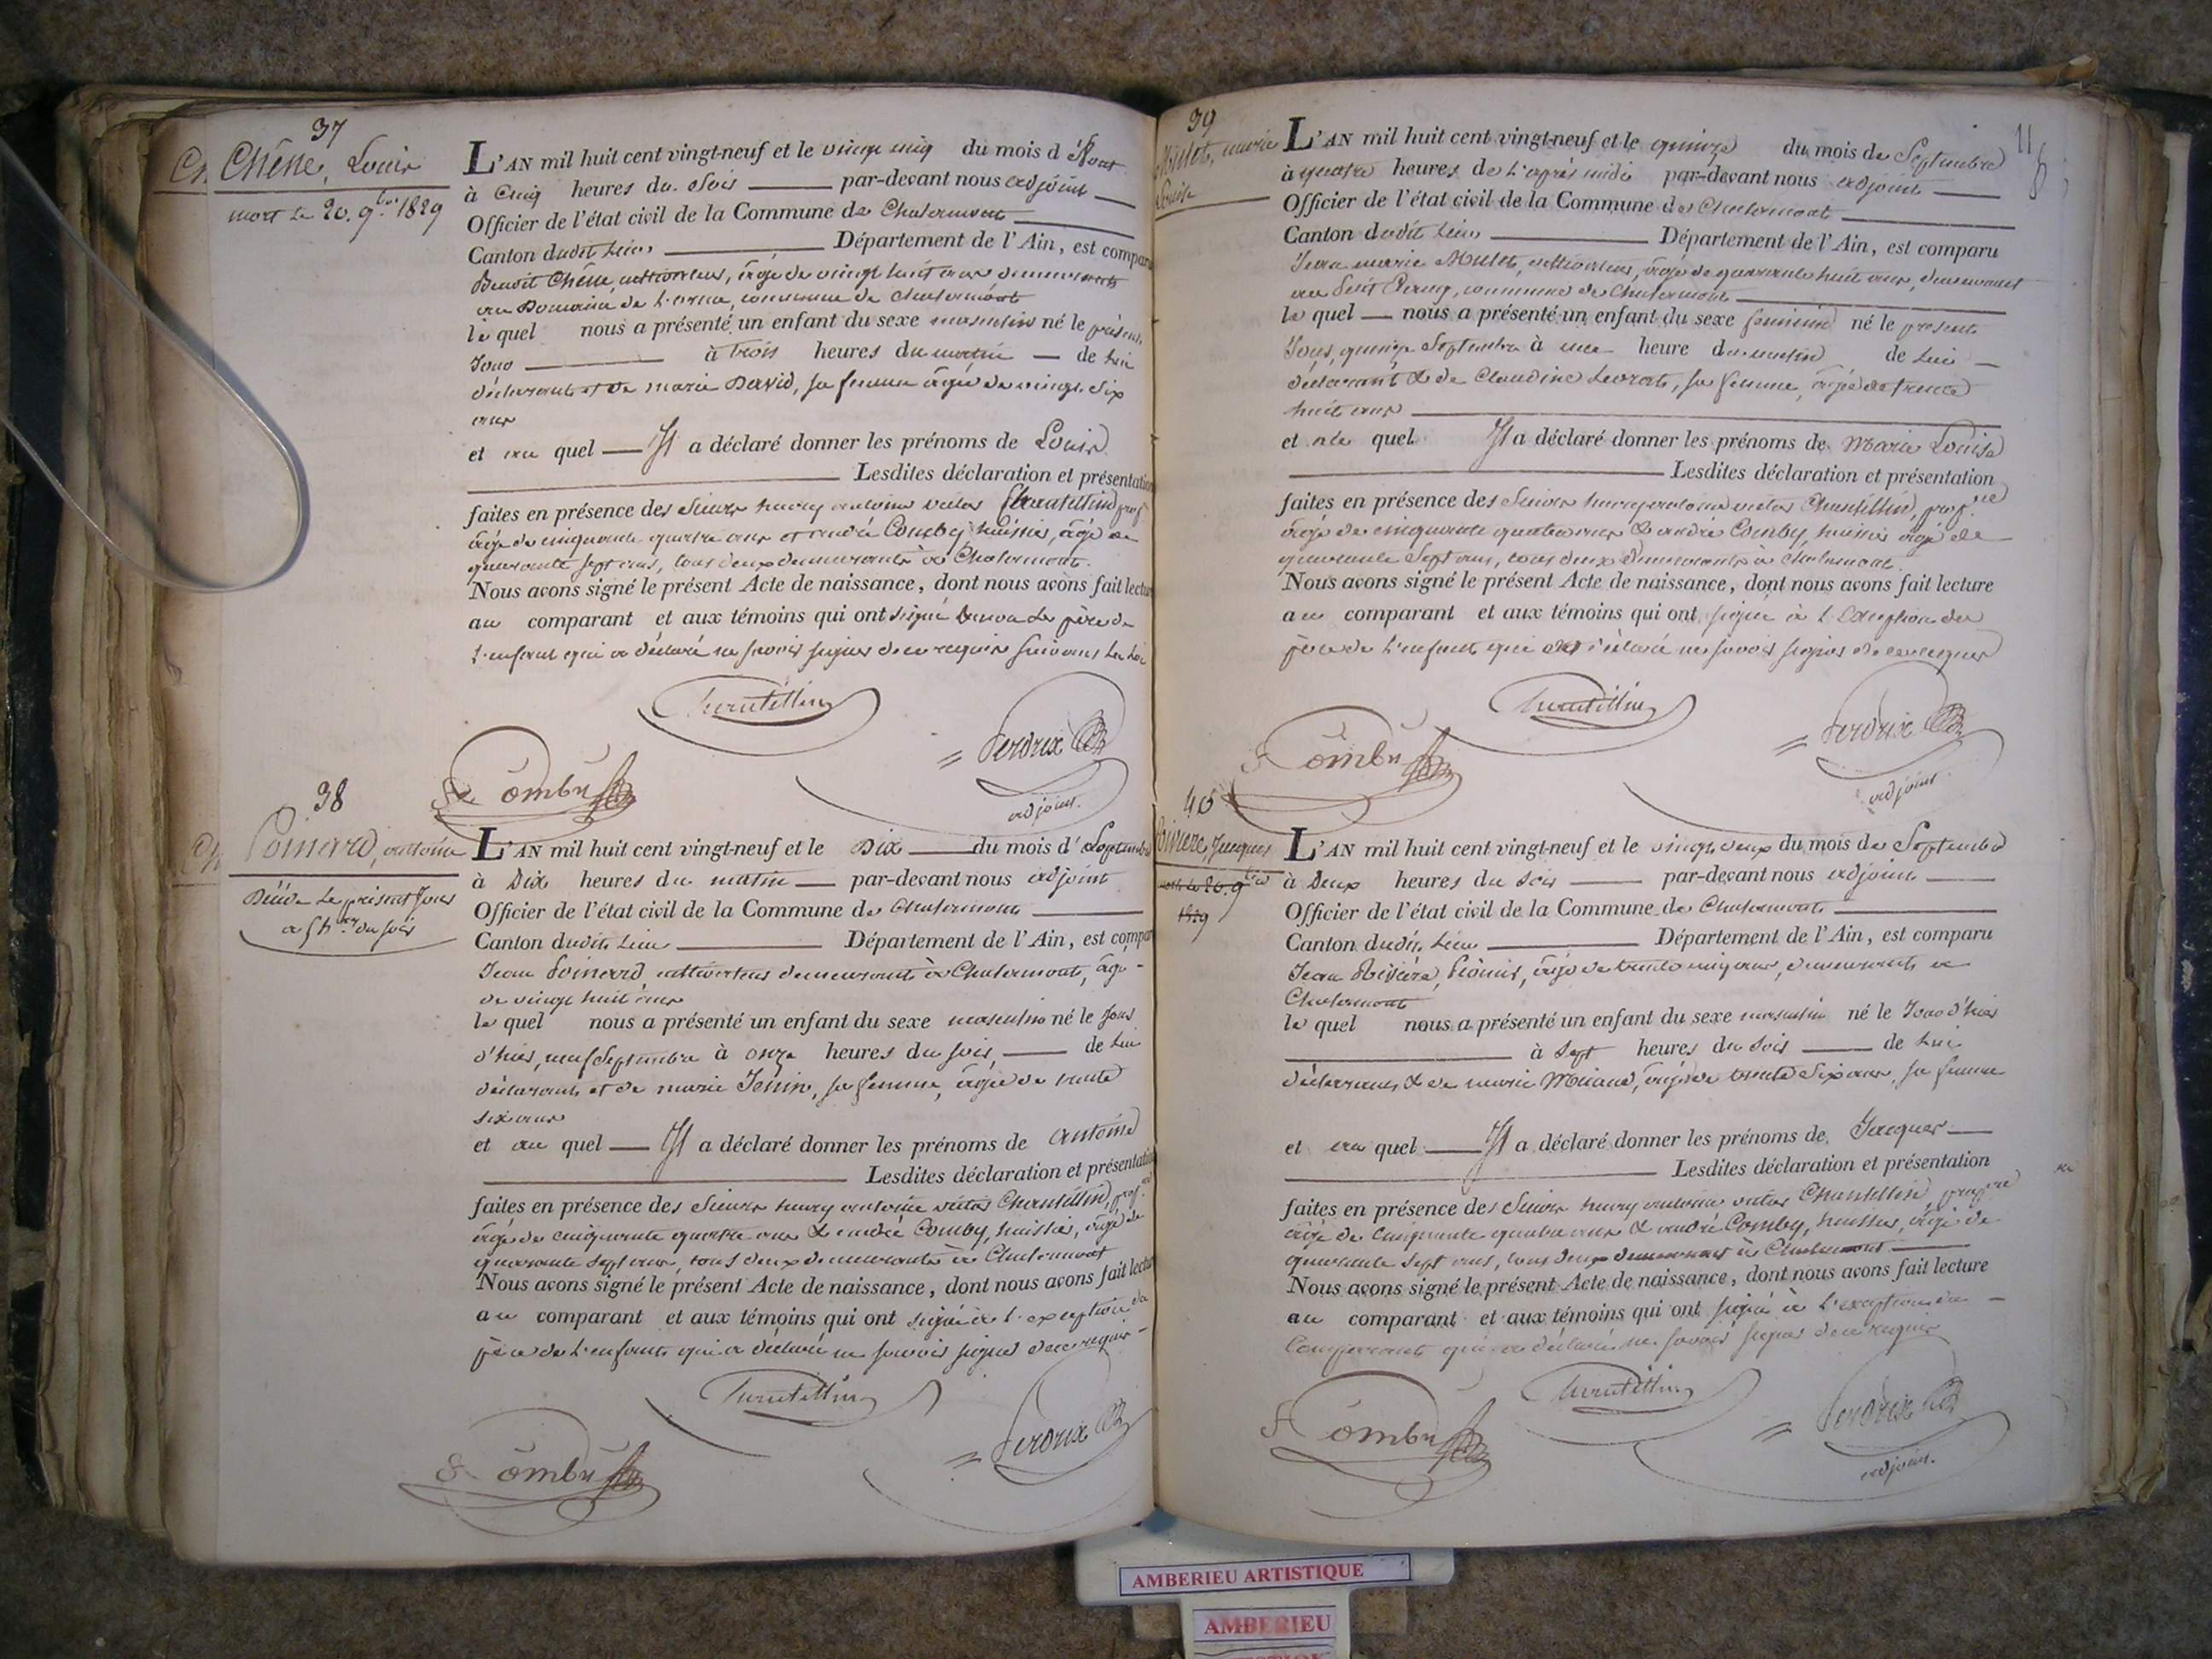 37
Chêne, Louis
mort le 20. 9bre 1829
L'AN mil huit cent vingt-neuf et le vingt cinq du mois d'Aout
à Cinq heures du Soir par-devant nous adjoint
Officier de l'état civil de la Commune de Chalamont
Canton dudit Lieu Département de l'Ain, est comparu
Benoit Chêne, cultivateur, âgé de vingt huit ans, demeurant
au Domaine de commune de Chalamont
le quel nous a présenté un enfant du sexe masculin né le présent
Jour à trois heures du matin de lui
déclarant et de marie David, sa femme âgée de vingt six
ans
et au quel Il a déclaré donner les prénoms de Louis
Lesdites déclaration et présentation
faites en présence des Sieurs henry antoine victor Chantellin prop
âgé de cinquante quatre ans et andré Comby huissier, âgé de
quarante sept ans, tous deux demeurants à Chalamont.
Nous avons signé le présent Acte de naissance, dont nous avons fait lecture
au comparant et aux témoins qui ont signé père de
l'enfant qui a déclaré ne savoir signer de ce requis suivant la loi
Comby
Perdrix
adjoint.
38
Poinard, antoine
Décédé le présent Jour
à 5 h.res du soir
L'AN mil huit cent vingt-neuf et le Dix du mois d' Septembre
à Dix heures du matin par-devant nous adjoint
Officier de l'état civil de la Commune de Chalamont
Canton dudit Lieu Département de l'Ain, est comparu
Jean Poinard, cultivateur demeurant à Chalamont, âgé
de vingt huit ans
le quel nous a présenté un enfant du sexe masculin né le Jour
d'hier, neuf Septembre à onze heures du soir de lui
déclarant et de marie sa femme, âgée de trente
six ans
et au quel Il a déclaré donner les prénoms de antoine
Lesdites déclaration et présentation
faites en présence des Sieurs henry antoine victor Chantellin, prop.re
âgé de cinquante quatre ans & andré Comby, huissier, âgé de
quarante sept ans, tous deux demeurants à Chalamont
Nous avons signé le présent Acte de naissance, dont nous avons fait lecture
au comparant et aux témoins qui ont signé à l'exception du
père de l'enfant qui a déclaré ne savoir signer de ce requis
Comby
Perdrix
39
Mulet, marie
Louise
11
L'AN mil huit cent vingt-neuf et le quinze du mois de Septembre
à quatre heures de l'après midi par-devant nous adjoint
Officier de l'état civil de la Commune de Chalamont
Canton dudit Lieu Département de l'Ain, est comparu
Jean marie Mulet, cultivateur, âgé de quarante huit ans, demeurant
au Petit commune de Chalamont
le quel nous a présenté un enfant du sexe féminin né le présent
Jour, quinze Septembre à une heure du matin de lui
déclarant & de Claudine Levrat, sa femme, âgée de trente
huit ans
et à la quel Il a déclaré donner les prénoms de Marie Louise
Lesdites déclaration et présentation
faites en présence des Sieurs henry antoine victor Chantellin, prop.re
âgé de cinquante quatre ans & andré Comby, huissier âgé de
quarante Sept ans, tous deux demeurants à Chalamont.
Nous avons signé le présent Acte de naissance, dont nous avons fait lecture
au comparant et aux témoins qui ont signé à l'exception du
père de l'enfant qui a déclaré ne savoir signer de ce requis
Comby
Perdrix
adjoint
40
Riviere, Jacques
mort le 20. 9bre
1829
L'AN mil huit cent vingt-neuf et le vingt deux du mois de Septembre
à Deux heures du Soir par-devant nous adjoint
Officier de l'état civil de la Commune de Chalamont
Canton dudit Lieu Département de l'Ain, est comparu
Jean Rivière, âgé de trente cinq ans, demeurant à
Chalamont
le quel nous a présenté un enfant du sexe masculin né le Jour d'hier
à Sept heures du Soir de lui
déclarant & de marie âgée de trente Six ans, sa femme
et au quel Il a déclaré donner les prénoms de Jacques
Lesdites déclaration et présentation
faites en présence des Sieurs henry antoine victor Chantellin prop.re
âgé de Cinquante quatre ans & andré Comby, huissier, âgé de
quarante sept ans, tous deux demeurants à Chalamont
Nous avons signé le présent Acte de naissance, dont nous avons fait lecture
au comparant et aux témoins qui ont signé à l'exception du
Comparant qui a déclaré ne savoir signer de ce requis
Comby
Perdrix
adjoint.
AMBERIEU ARTISTIQUE
AMBERIEU